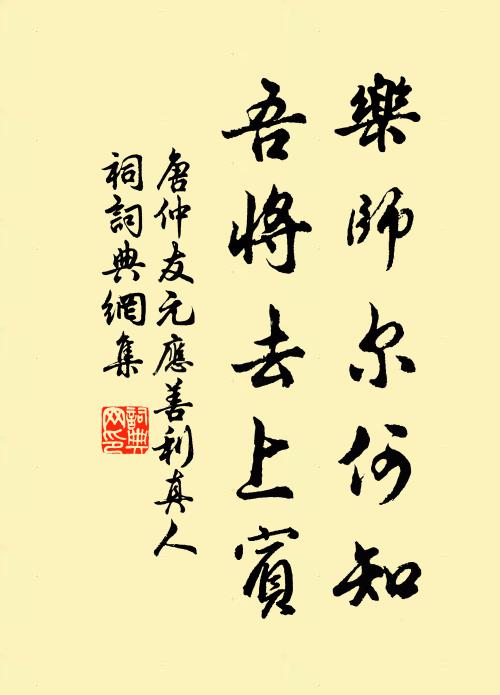 樂師尔何知
吾將去上賓
唐仲友元應善利真人
祠詞典網集
詞典網印